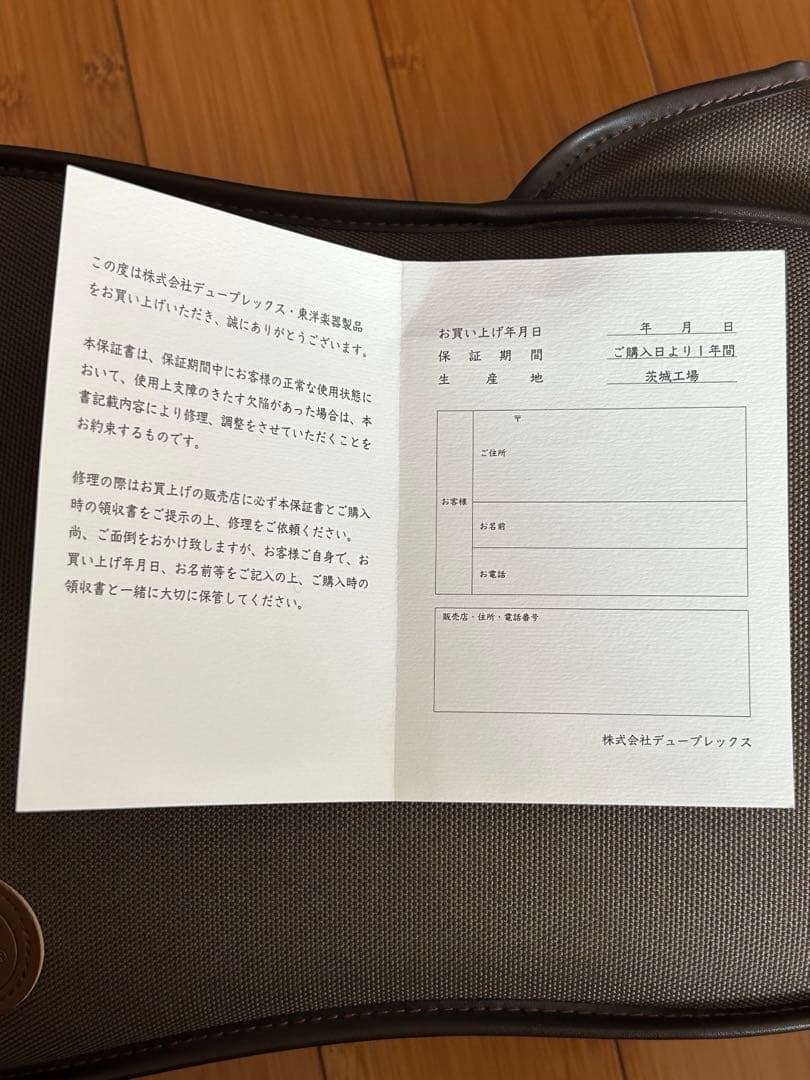 この度は株式会社デュープレックス・東洋楽器製品
をお買い上げいただき、誠にありがとうございます。
本保証書は、保証期間中にお客様の正常な使用状態に
おいて、使用上支障のきたす欠陥があった場合は、本
書記載内容により修理、調整をさせていただくことを
お約束するものです。
修理の際はお買上げの販売店に必ず本保証書とご購入
時の領収書をご提示の上、修理をご依頼ください。
尚、ご面倒をおかけ致しますが、お客様ご自身で、お
買い上げ年月日、お名前等をご記入の上、ご購入時の
領収書と一緒に大切に保管してください。
お買い上げ年月日 年 月 日
保証期間 ご購入日より1年間
生産地 茨城工場
お客様
〒
ご住所
お名前
お電話
販売店・住所・電話番号
株式会社デュープレックス